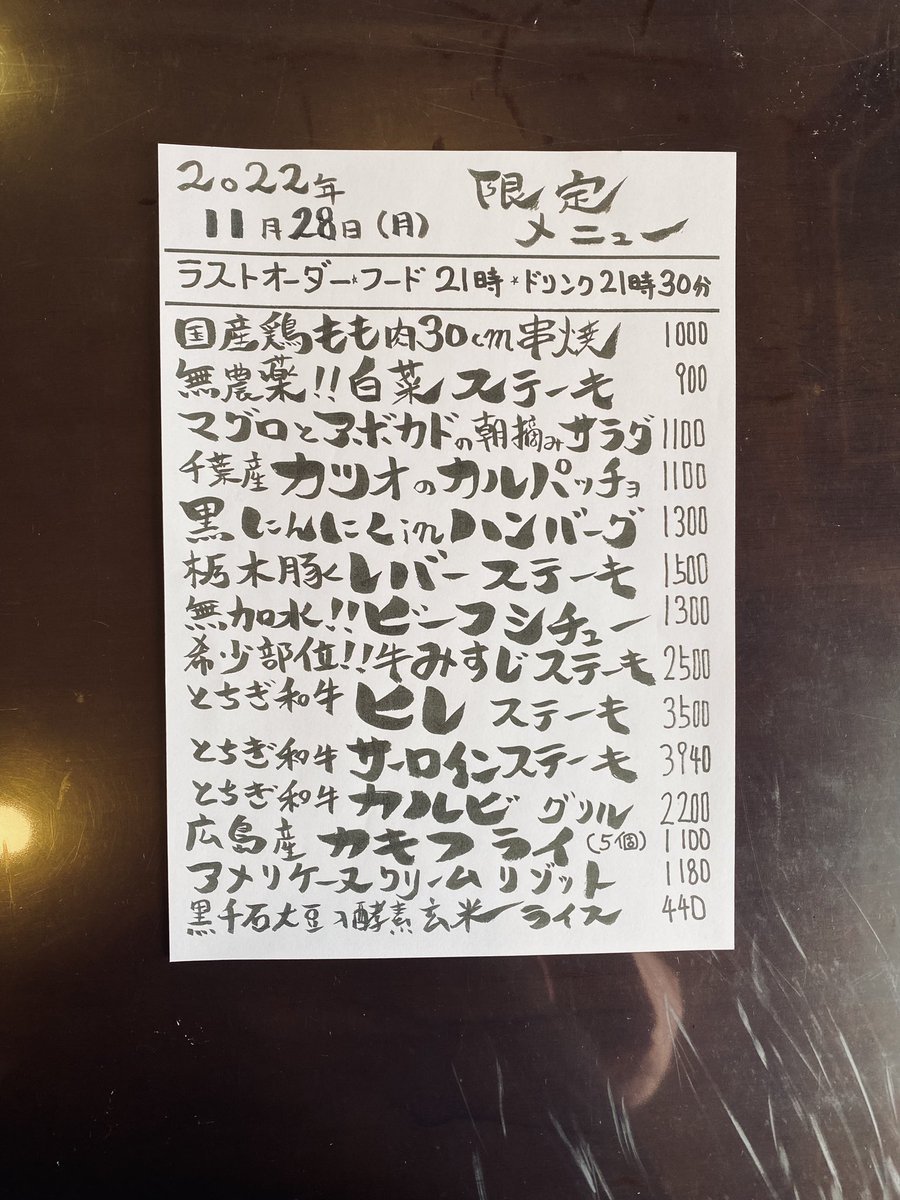 2022年
11月28日(月)
限定
メニュー
ラストオーダー*フード21時*ドリンク21時30分
国産鶏もも肉30cm串焼 1000
無農薬!!白菜ステーキ 900
マグロとアボカドの朝摘みサラダ 1100
千葉産カツオのカルパッチョ 1100
黒にんにくinハンバーグ 1300
栃木豚レバーステーキ 1500
無加水!!ビーフシチュー 1300
希少部位!!牛みすじステーキ 2500
とちぎ和牛ヒレステーキ 3500
とちぎ和牛サーロインステーキ 3940
とちぎ和牛カルビグリル 2200
広島産カキフライ(5個) 1100
アメリケーヌクリームリゾット 1180
黒千石大豆入酵素玄米ライス 440